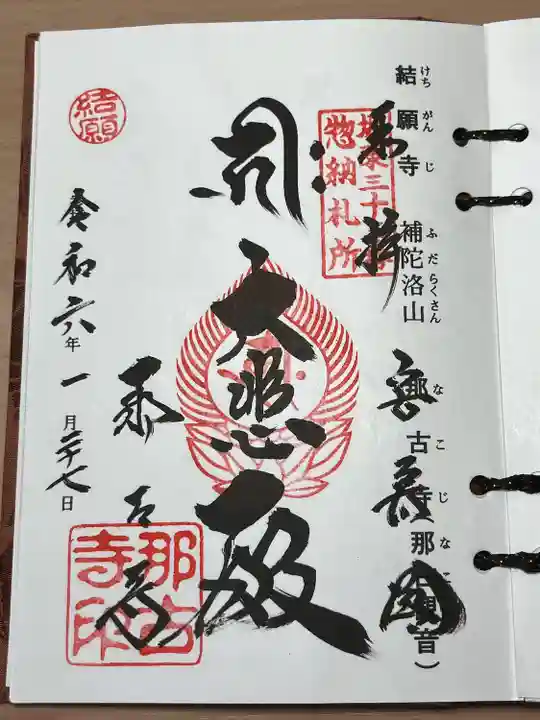 結願寺 補陀洛山 那古寺(那古観音)
けちがんじ ふだらくさん なこじ なこ
奉拝
坂東三十三
惣納札所
大悲殿
那古寺
結願
令和六年一月二十七日
那古寺印